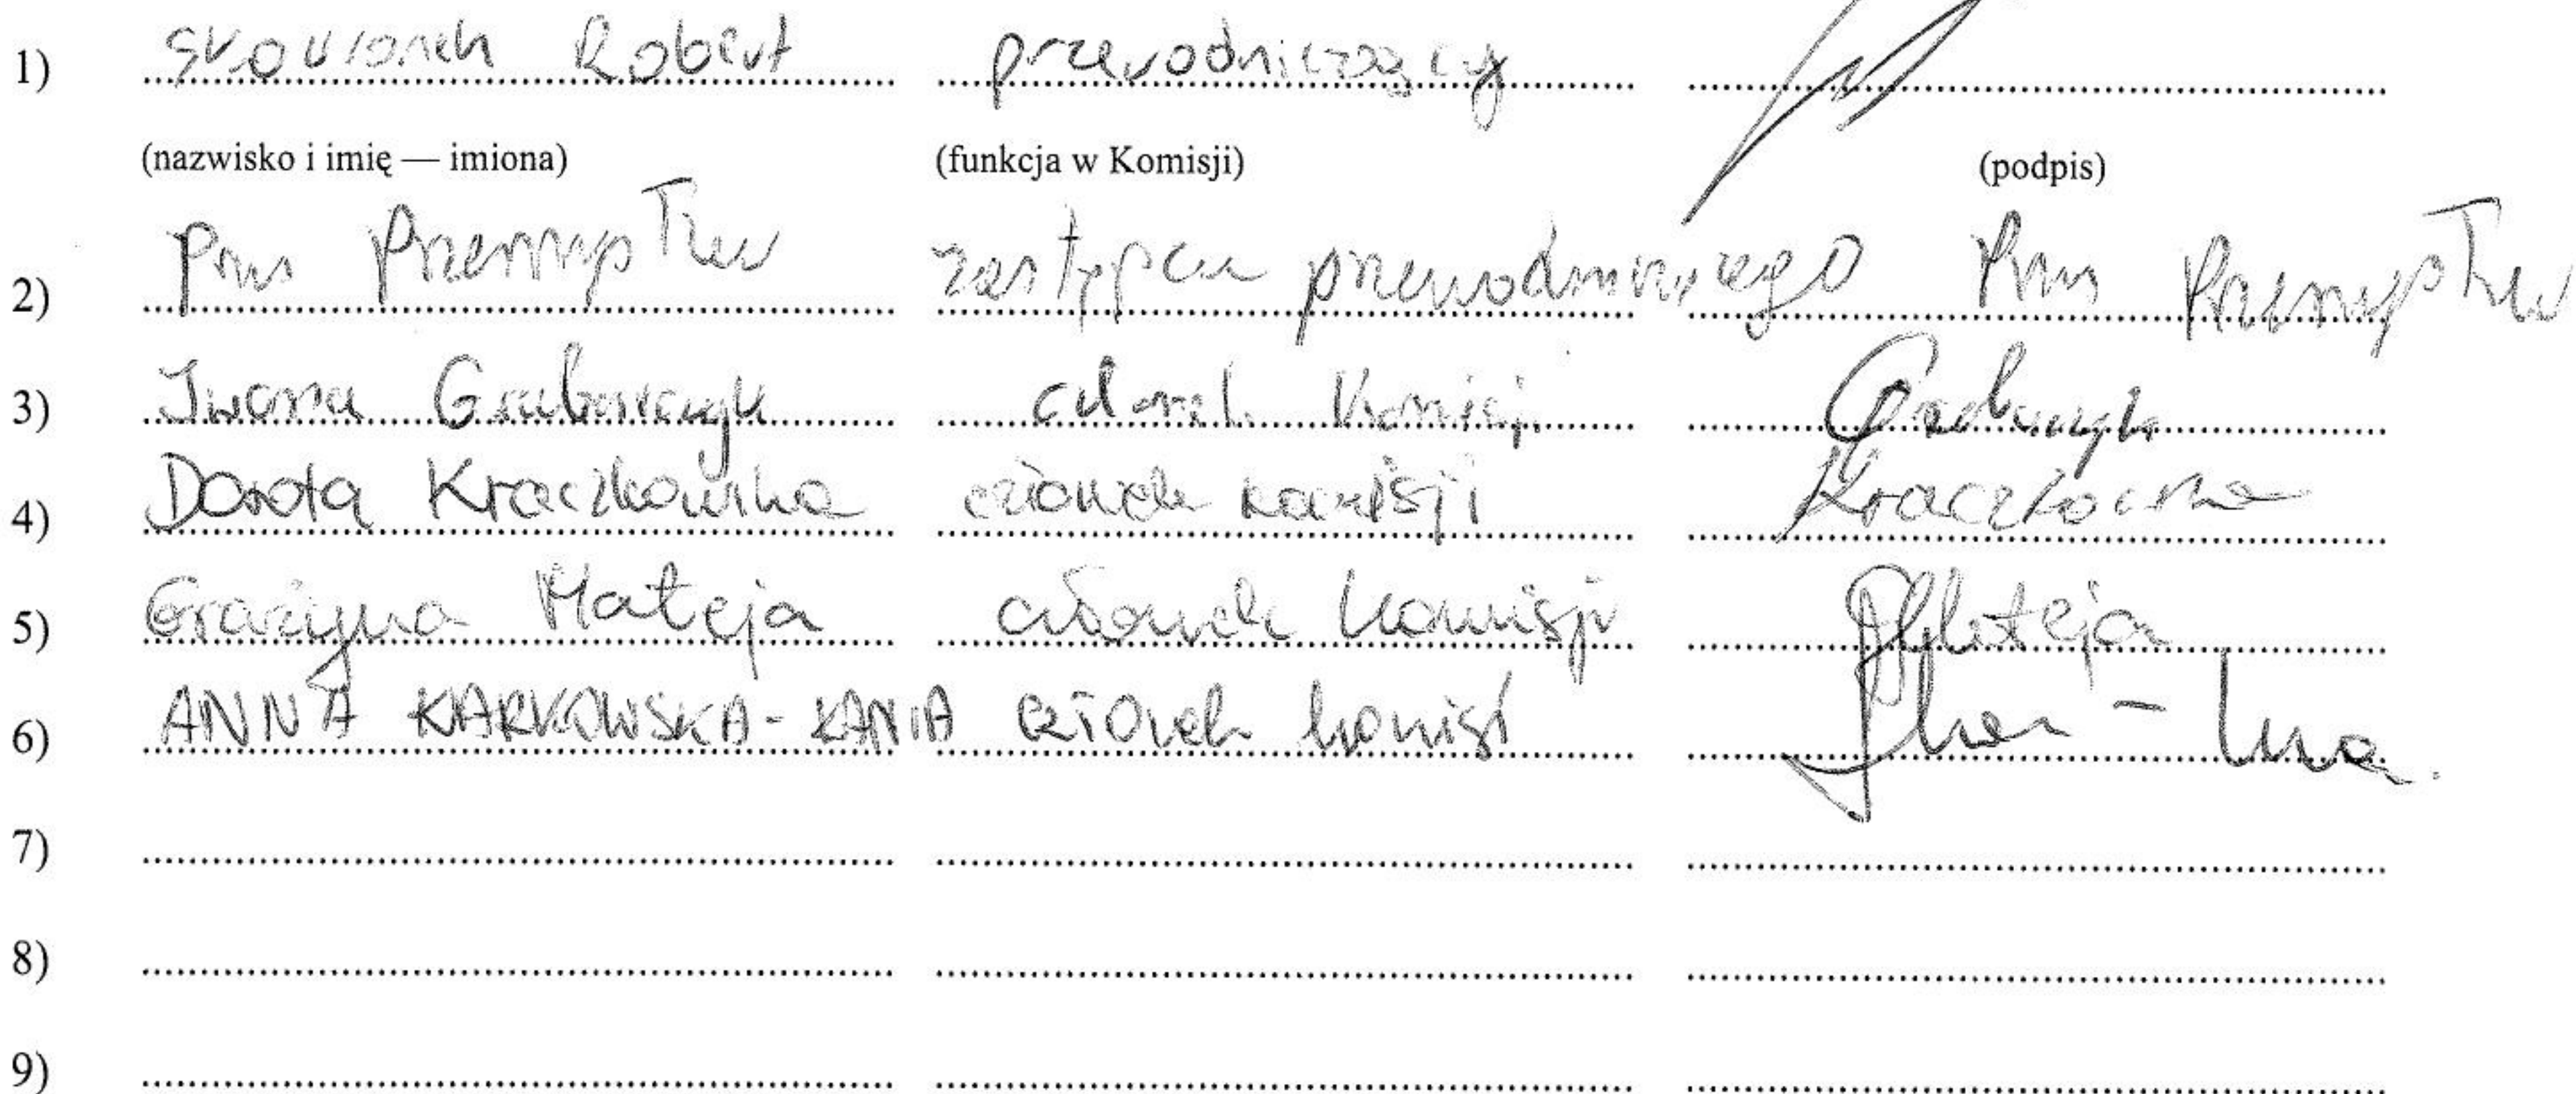 1) Skowronek Robert przewodniczący
(nazwisko i imię — imiona) (funkcja w Komisji) (podpis)
2) Prus Przemysław zastępca przewodniczącego Prus Przemysław
3) Iwona Grabowczyk członek Komisji
4) Dorota Kraczkowska członek komisji Kraczkowska
5) Grażyna Mateja członek komisji Mateja
6) ANNA KARKOWSKA-KANIA członek komisj
7)
8)
9)